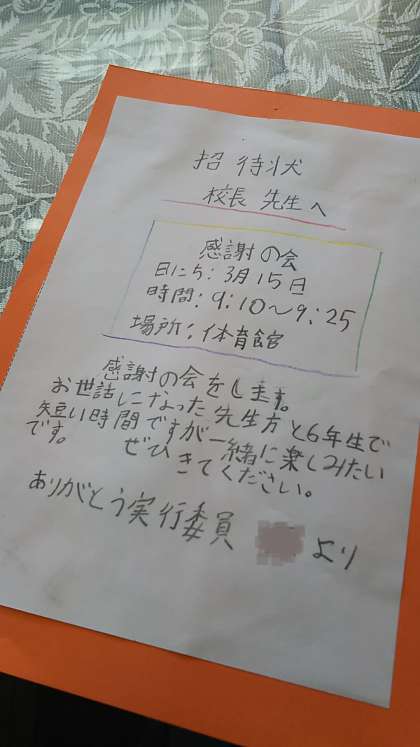 招待状
校長先生へ
感謝の会
日にち：3月15日
時間：9：10～9：25
場所：体育館
感謝の会をします。
お世話になった先生方と6年生で
短い時間ですが一緒に楽しみたい
です。 ぜひきてください。
ありがとう実行委員 より